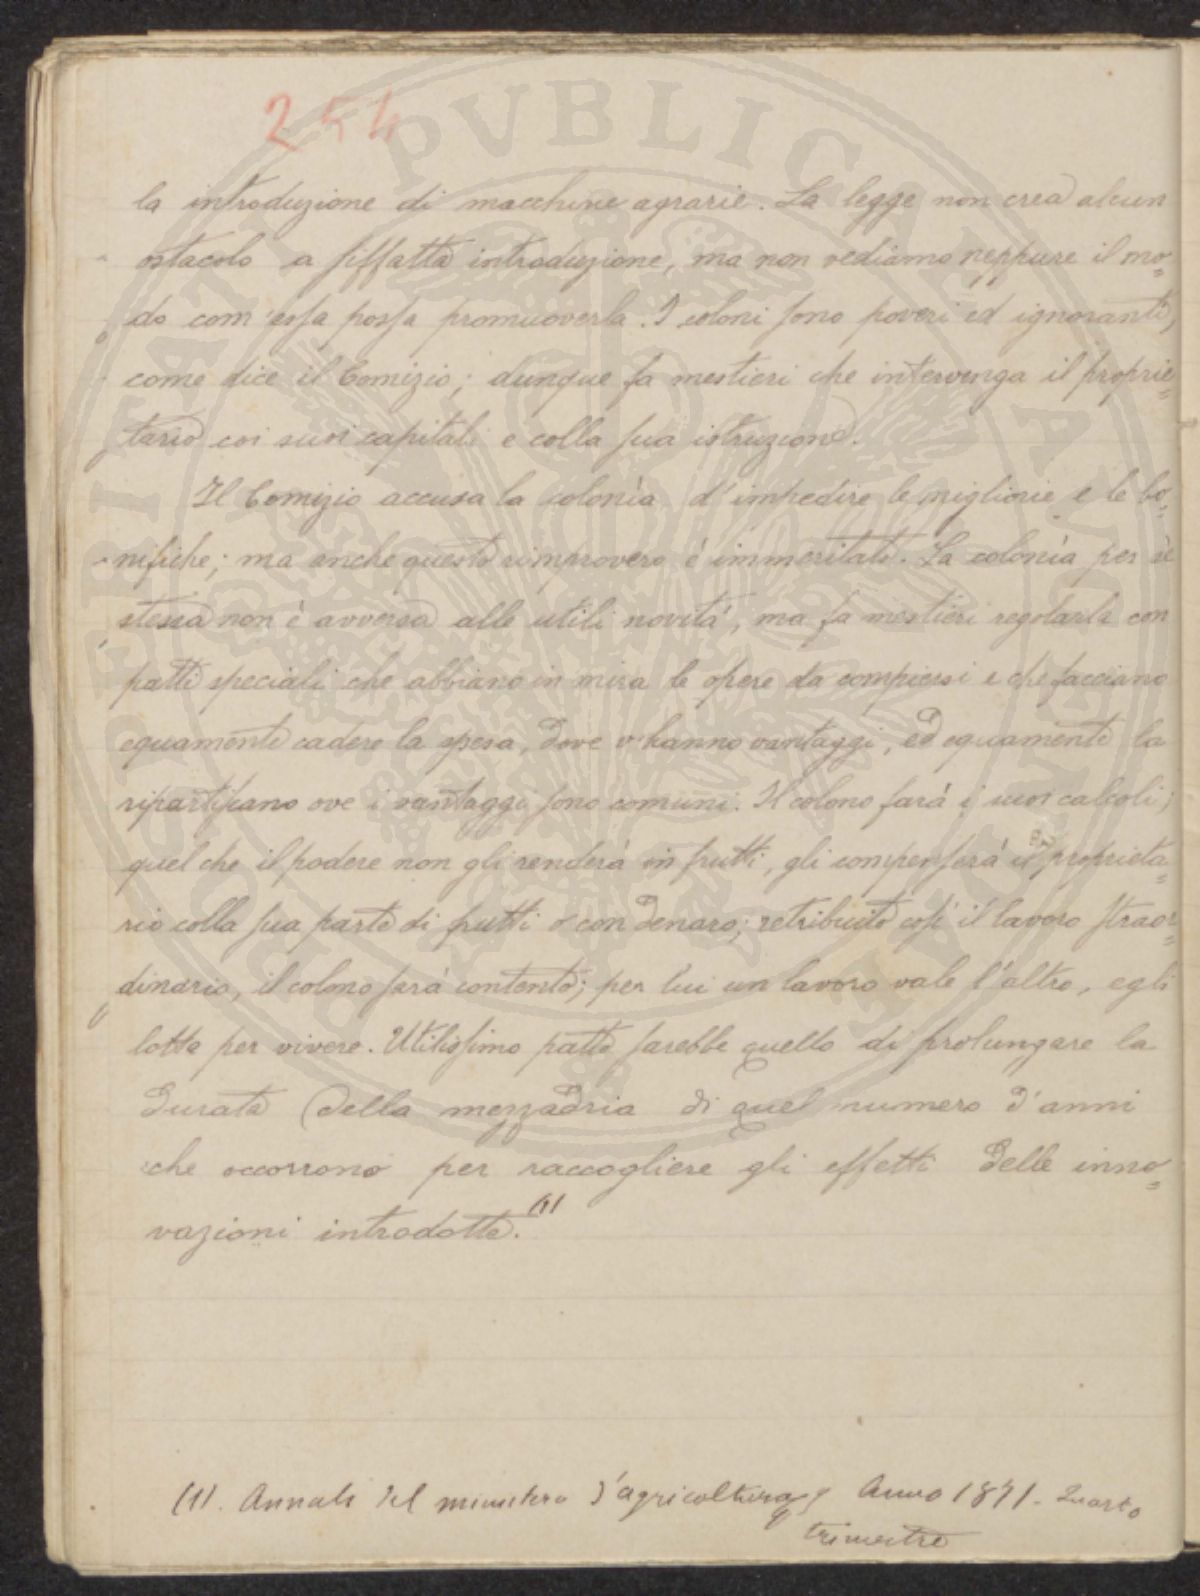 254
la introduzione di macchine agrarie. La legge non crea alcun
ostacolo a siffatta introduzione, ma non vediamo neppure il mo=
do com'essa possa promuoverla. I coloni sono poveri ed ignoranti,
come dice il Comizio; dunque fa mestieri che intervenga il proprie=
tario coi suoi capitali e colla sua istruzione.
Il Comizio accusa la colonìa d'impedire le migliorie e le bo=
nifiche; ma anche questo rimprovero è immeritato. La colonìa per sè
stessa non è avversa alle utili novità, ma fa mestieri regolarla con
patti speciali che abbiano in mira le opere da compiersi e che facciano
equamente cadere la spesa, dove v'hanno vantaggi, ed equamente la
ripartiscano ove i vantaggi sono comuni. Il colono farà i suoi calcoli;
quel che il podere non gli renderà in frutti, gli compenserà il proprieta=
rio colla sua parte di frutti o con denaro; retribuito così il lavoro straor=
dinario, il colono sarà contento; per lui un lavoro vale l'altro, egli
lotta per vivere. Utilissimo patto sarebbe quello di prolungare la
durata della mezzadria di quel numero d'anni
che occorrono per raccogliere gli effetti delle inno=
vazioni introdotte. (1)
(1). Annali del ministero d'agricoltura, Anno 1871. Quarto
trimestre